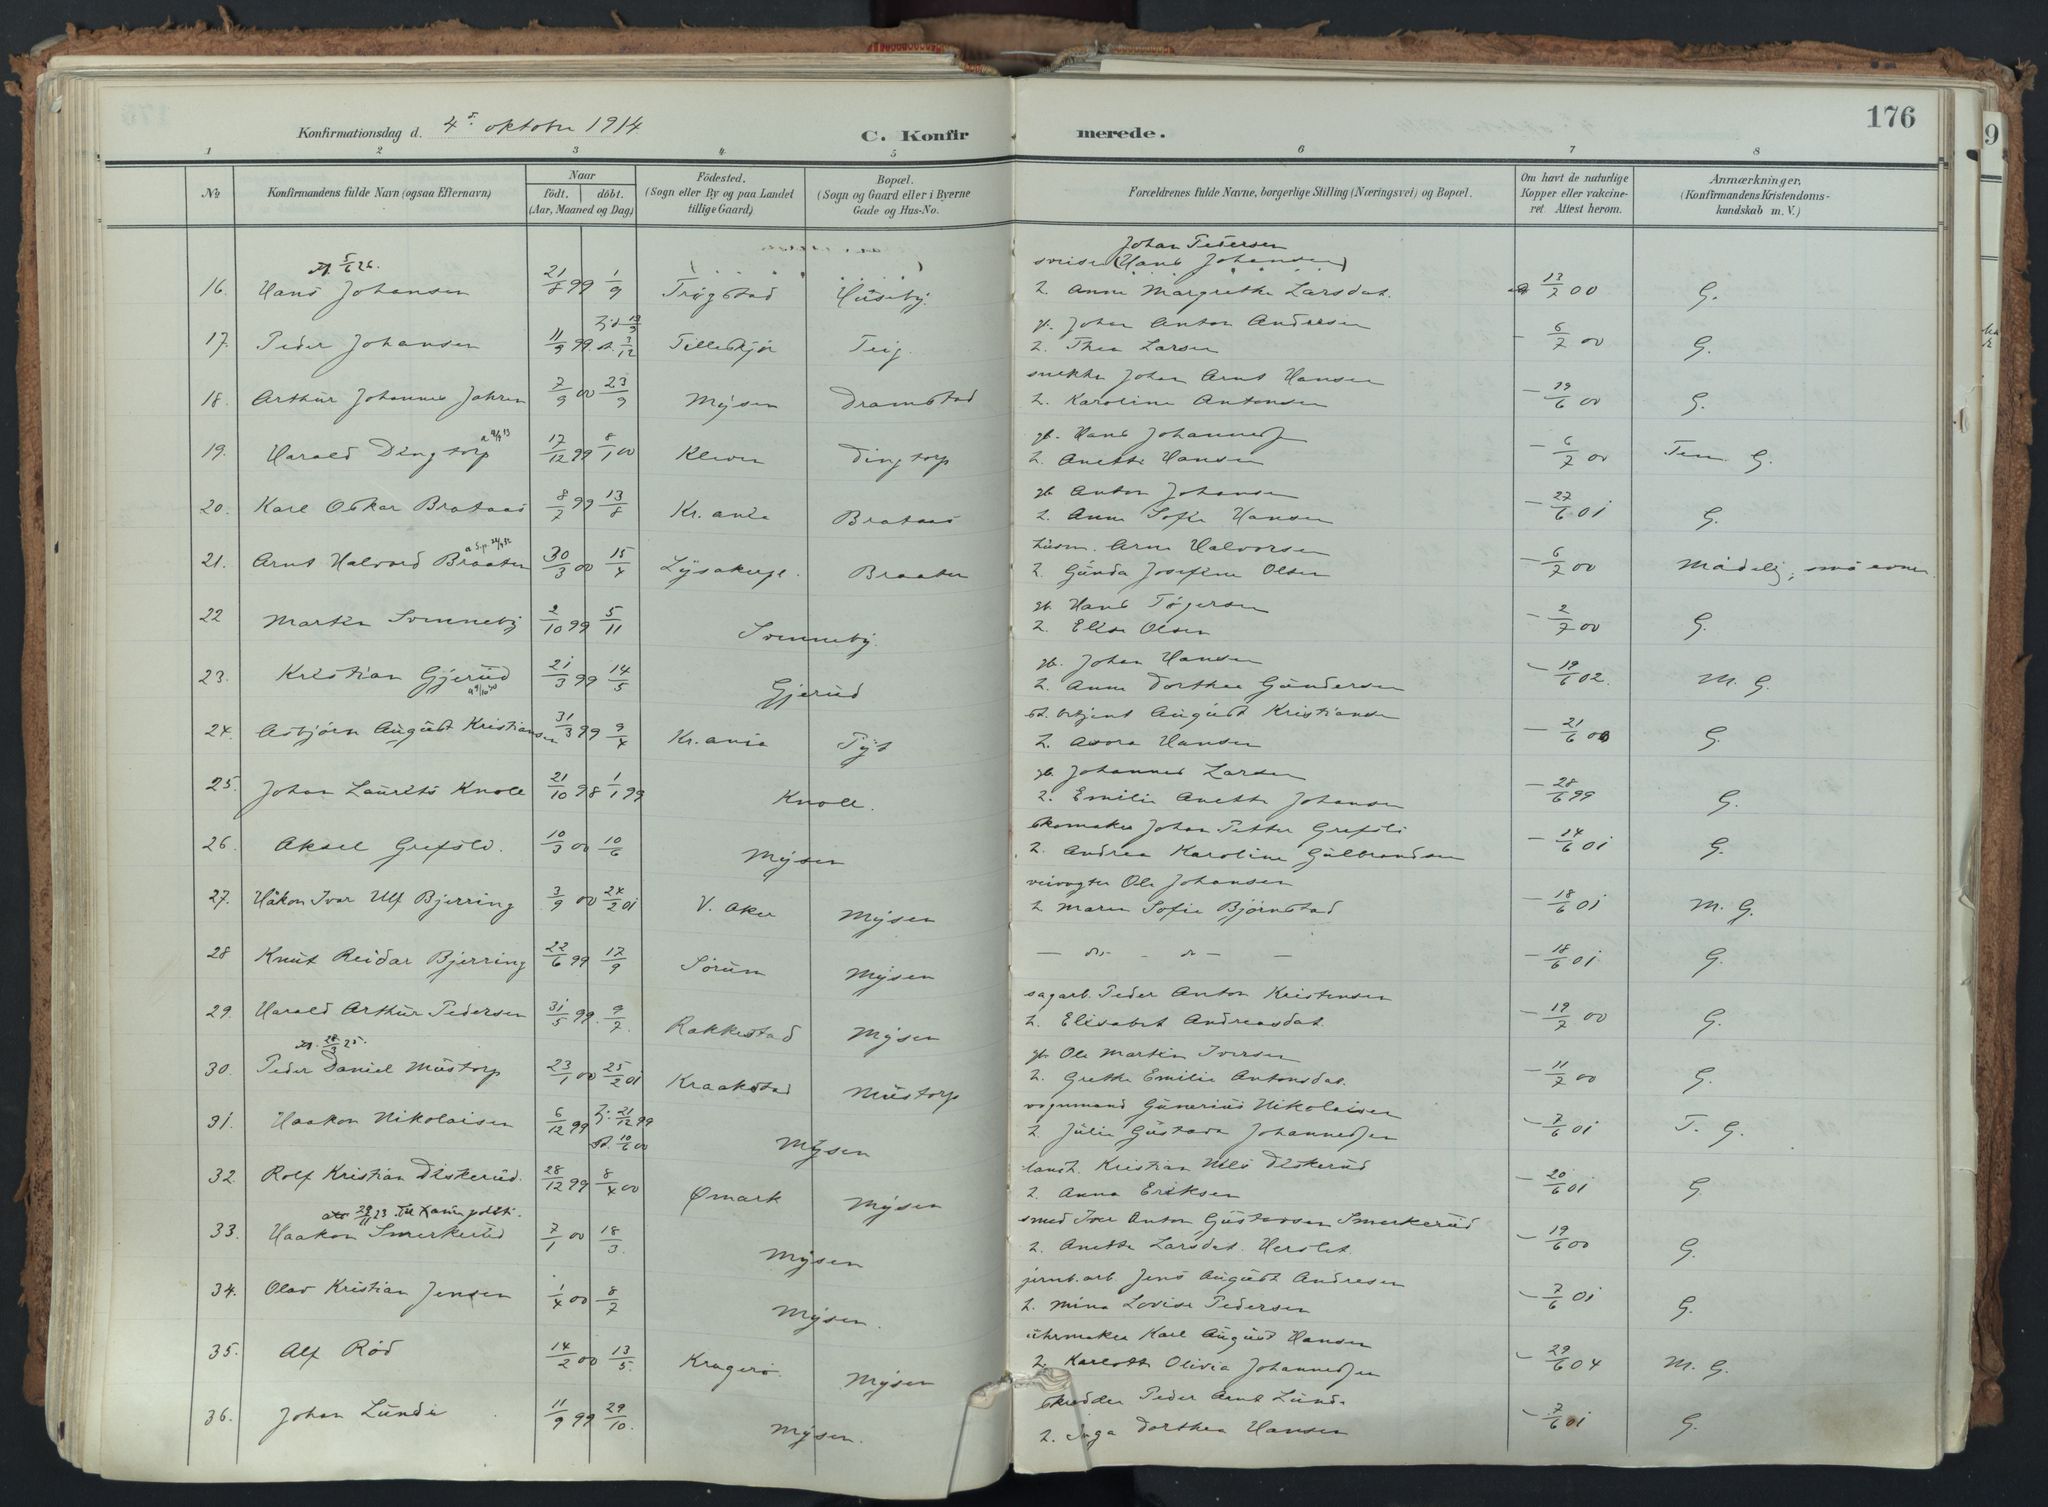 176
Konfirmationsdag d. 4de oktober 1914
C. Konfirmerede.
1 2 3 4 5 6 7 8
No.
Konfirmandens fulde Navn (ogsaa Efternavn)
Naar
födt. döbt.
(Aar, Maaned og Dag)
Födested.
(Sogn eller By og paa Landet
tillige Gaard)
Bopæl.
(Sogn og Gaard eller i Byerne
Gade og Hus-No.
Forældrenes fulde Navne, borgerlige Stilling (Næringsvei) og Bopæl.
Om havt de naturlige
Kopper eller vakcine-
ret. Attest herom.
Anmærkninger,
(Konfirmandens Kristendoms-
kundskab m. V.)
5/6 26.
Johan Pedersen
sveiser (Hans Johansen)
16. Hans Johansen 21/8 99 1/9 Trøgstad Huseby. 2. Anne Margrethe Larsdat. 13/7 00 G.
17. Peder Johansen 11/9 99 3/12 Teig. Johan Anton Andresen
2. Thea Larsen - 6/7 00 G.
18. Arthur Johannes Jahren 7/9 00 23/9 Mysen Dramstad snekker Johan Arnt Hansen
2. Karoline Antonsen - 19/6 00 G.
19. Harald Dingtorp 17/12 99 8/1 00 Kleven Dingtorp gb. Hans Johannesen
2. Anette Hansen - 6/7 00 G.
20. Karl Oskar Brataas 8/7 99 13/8 Kr.ania Brataas gb. Anton Johansen
2. Anne Sofie Hansen - 27/6 01 G.
21. Arnt Halvard Braaten 30/3 00 15/4 Braaten husm. Arne Halvorsen
2. Gunda Josefine Olsen - 6/7 00 Mådelig, små evner.
22 Martin Svenneby 2/10 99 5/11 Svenneby. gb. Hans Tøgersen
2. Elise Olsen - 2/7 00 G.
23. Kristian Gjerud 21/3 99 14/5 Gjerud gb. Johan Hansen
2. Anne Dorthea Gundersen - 19/6 02. M. G.
24. Asbjørn August Kristiansen 31/3 99 9/4 Kr.ania August Kristiansen
2. Hansen - 21/6 00 G.
25. Johan Laurits Knoll 21/10 98 1/1 99 Knoll. gb. Johannes Larsen
2. Emilie Anette Johansen - 28/6 99 G.
26. Aksel Grefsli. 10/3 00 10/6 Mysen skomaker Johan Petter Grefsli
2. Andrea Karoline Gulbrandsen - 14/6 01 G.
27. Håkon Ivar Ulf Bjerring 3/9 00 24/2 01 V. Aker Mysen veivogter Ole Johansen
2 Maren Sofie Bjørnstad - 18/6 01 M. G.
28 Knut Reidar Bjerring 22/6 99 17/9 Sørum Mysen — do - do — - 18/6 01 G.
29. Harald Arthur Pedersen 31/5 99. 9/7. Rakkestad Mysen sagarb. Peder Anton Kristensen
2. Elisabet Andreasdat. - 19/7 00 G.
28/3 25.
30. Peder Daniel Mustorp 23/1 00 25/2 01 Kraakstad Mustorp gb. Ole Martin Iversen
2. Grethe Emilie Antonsdat. - 11/7 00 G.
31. Haakon Nikolaisen 6/12 99 21/12 99 10/6 00 Mysen vognmand Gunerius Nikolaisen
2. Julie Gustava Johannesen - 7/6 01 T. G.
32. Rolf Kristian Diskerud. 28/12 99 8/4 00 Ømark Mysen landh. Kristian Nils Diskerud
2. Anna Eriksen - 20/6 01 G.
33. Haakon Smerkerud 7/1 00 18/3. Mysen smed Iver Anton Gustavsen Smerkerud
2. Anette Larsdat. Herslet. - 19/6 00 G.
34. Olav Kristian Jensen 1/4 00 8/7 Mysen. jernb.arb. Jens August Andresen
2. Mina Lovise Pedersen - 7/6 01 G.
35. Alf Rød 14/2 00 13/5. Kragerø. Mysen uhrmaker Karl August Hansen
2. Karlotte Olivia Johannesen - 29/6 04 M. G.
36. Johan Lunde 11/9 99 29/10. Mysen. skredder Peder Arnt Lunde
2. Inga Dorthea Hansen - 7/6 01 G.